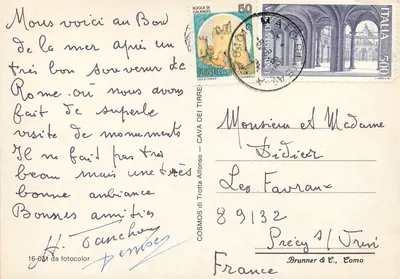 Nous voici au Bord
de la mer après un
très bon souvenir de
Rome. où nous avons
fait de superbe
visite de monuments
Il ne fait pas très
beau mais une très
bonne ambiance
Bonnes amitiés
16-024 da fotocolor
COSMOS di Trotta Alfonso — CAVA DEI TIRRENI
ROCCA DI CALASCIO
50
ITALIA
ITALIA
500
Monsieur et Madame
Didier
Les Favraux
89132
Précy s/ Vrin
France
Brunner & C., Como